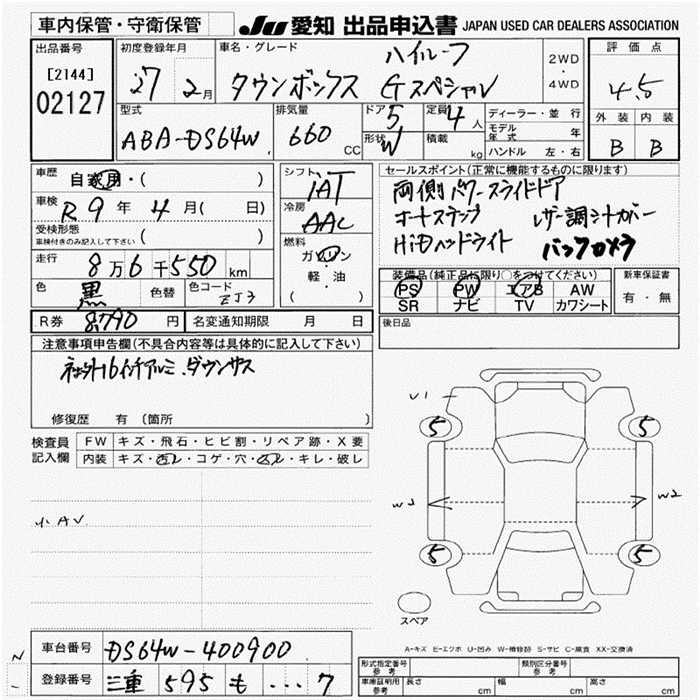 車内保管・守衛保管
JU 愛知 出品申込書 JAPAN USED CAR DEALERS ASSOCIATION
出品番号 [2144] 02127
初度登録年月 27 2月
車名・グレード ハイルーフ
タウンボックス Gスペシャル
2WD・4WD
評価点 4.5
外装 内装
B B
型式 ABA-DS64W
排気量 660 CC
ドア 5 定員 4人
形状 W 積載 kg
ディーラー・並行
モデル年式 年
ハンドル 左・右
車歴 自家用・( )
車検 R9年4月(日)
受検形態 ( )
車検付きのみ記入して下さい
走行 8万6千550km
色 黒 色替 色コード ZJ3
R券 8790円 名変通知期限 月 日
シフト IAT
冷房 AAC
燃料 ガソリン
軽・油
( )
セールスポイント(正常に機能するものに限ります)
両側パワースライドドア
オートステップ レザー調シートカバー
HiDヘッドライト バックカメラ
装備品(純正品に限り○をつけてください)
PS PW エアB AW
SR ナビ TV カワシート
新車保証書
有・無
後日品
注意事項申告欄(不具合内容等は具体的に記入して下さい)
社外16インチアルミ.ダウンサス
修復歴 有 〔箇所 〕
検査員記入欄
FW キズ・飛石・ヒビ割・リペア跡・X要
内装 キズ・汚レ・コゲ・穴・凹ミ・キレ・破レ
小AV
U1
5 5
W3 W2
5 5
スペア
A-キズ E-エクボ U-凹み W-補修跡 S-サビ C-腐食 XX-交換済
車台番号 DS64W-400900
登録番号 三重 595 も ...7
形式指定番号 参考 類別区分番号 参考
車庫証明用 参考 長さ cm 幅 cm 高さ cm